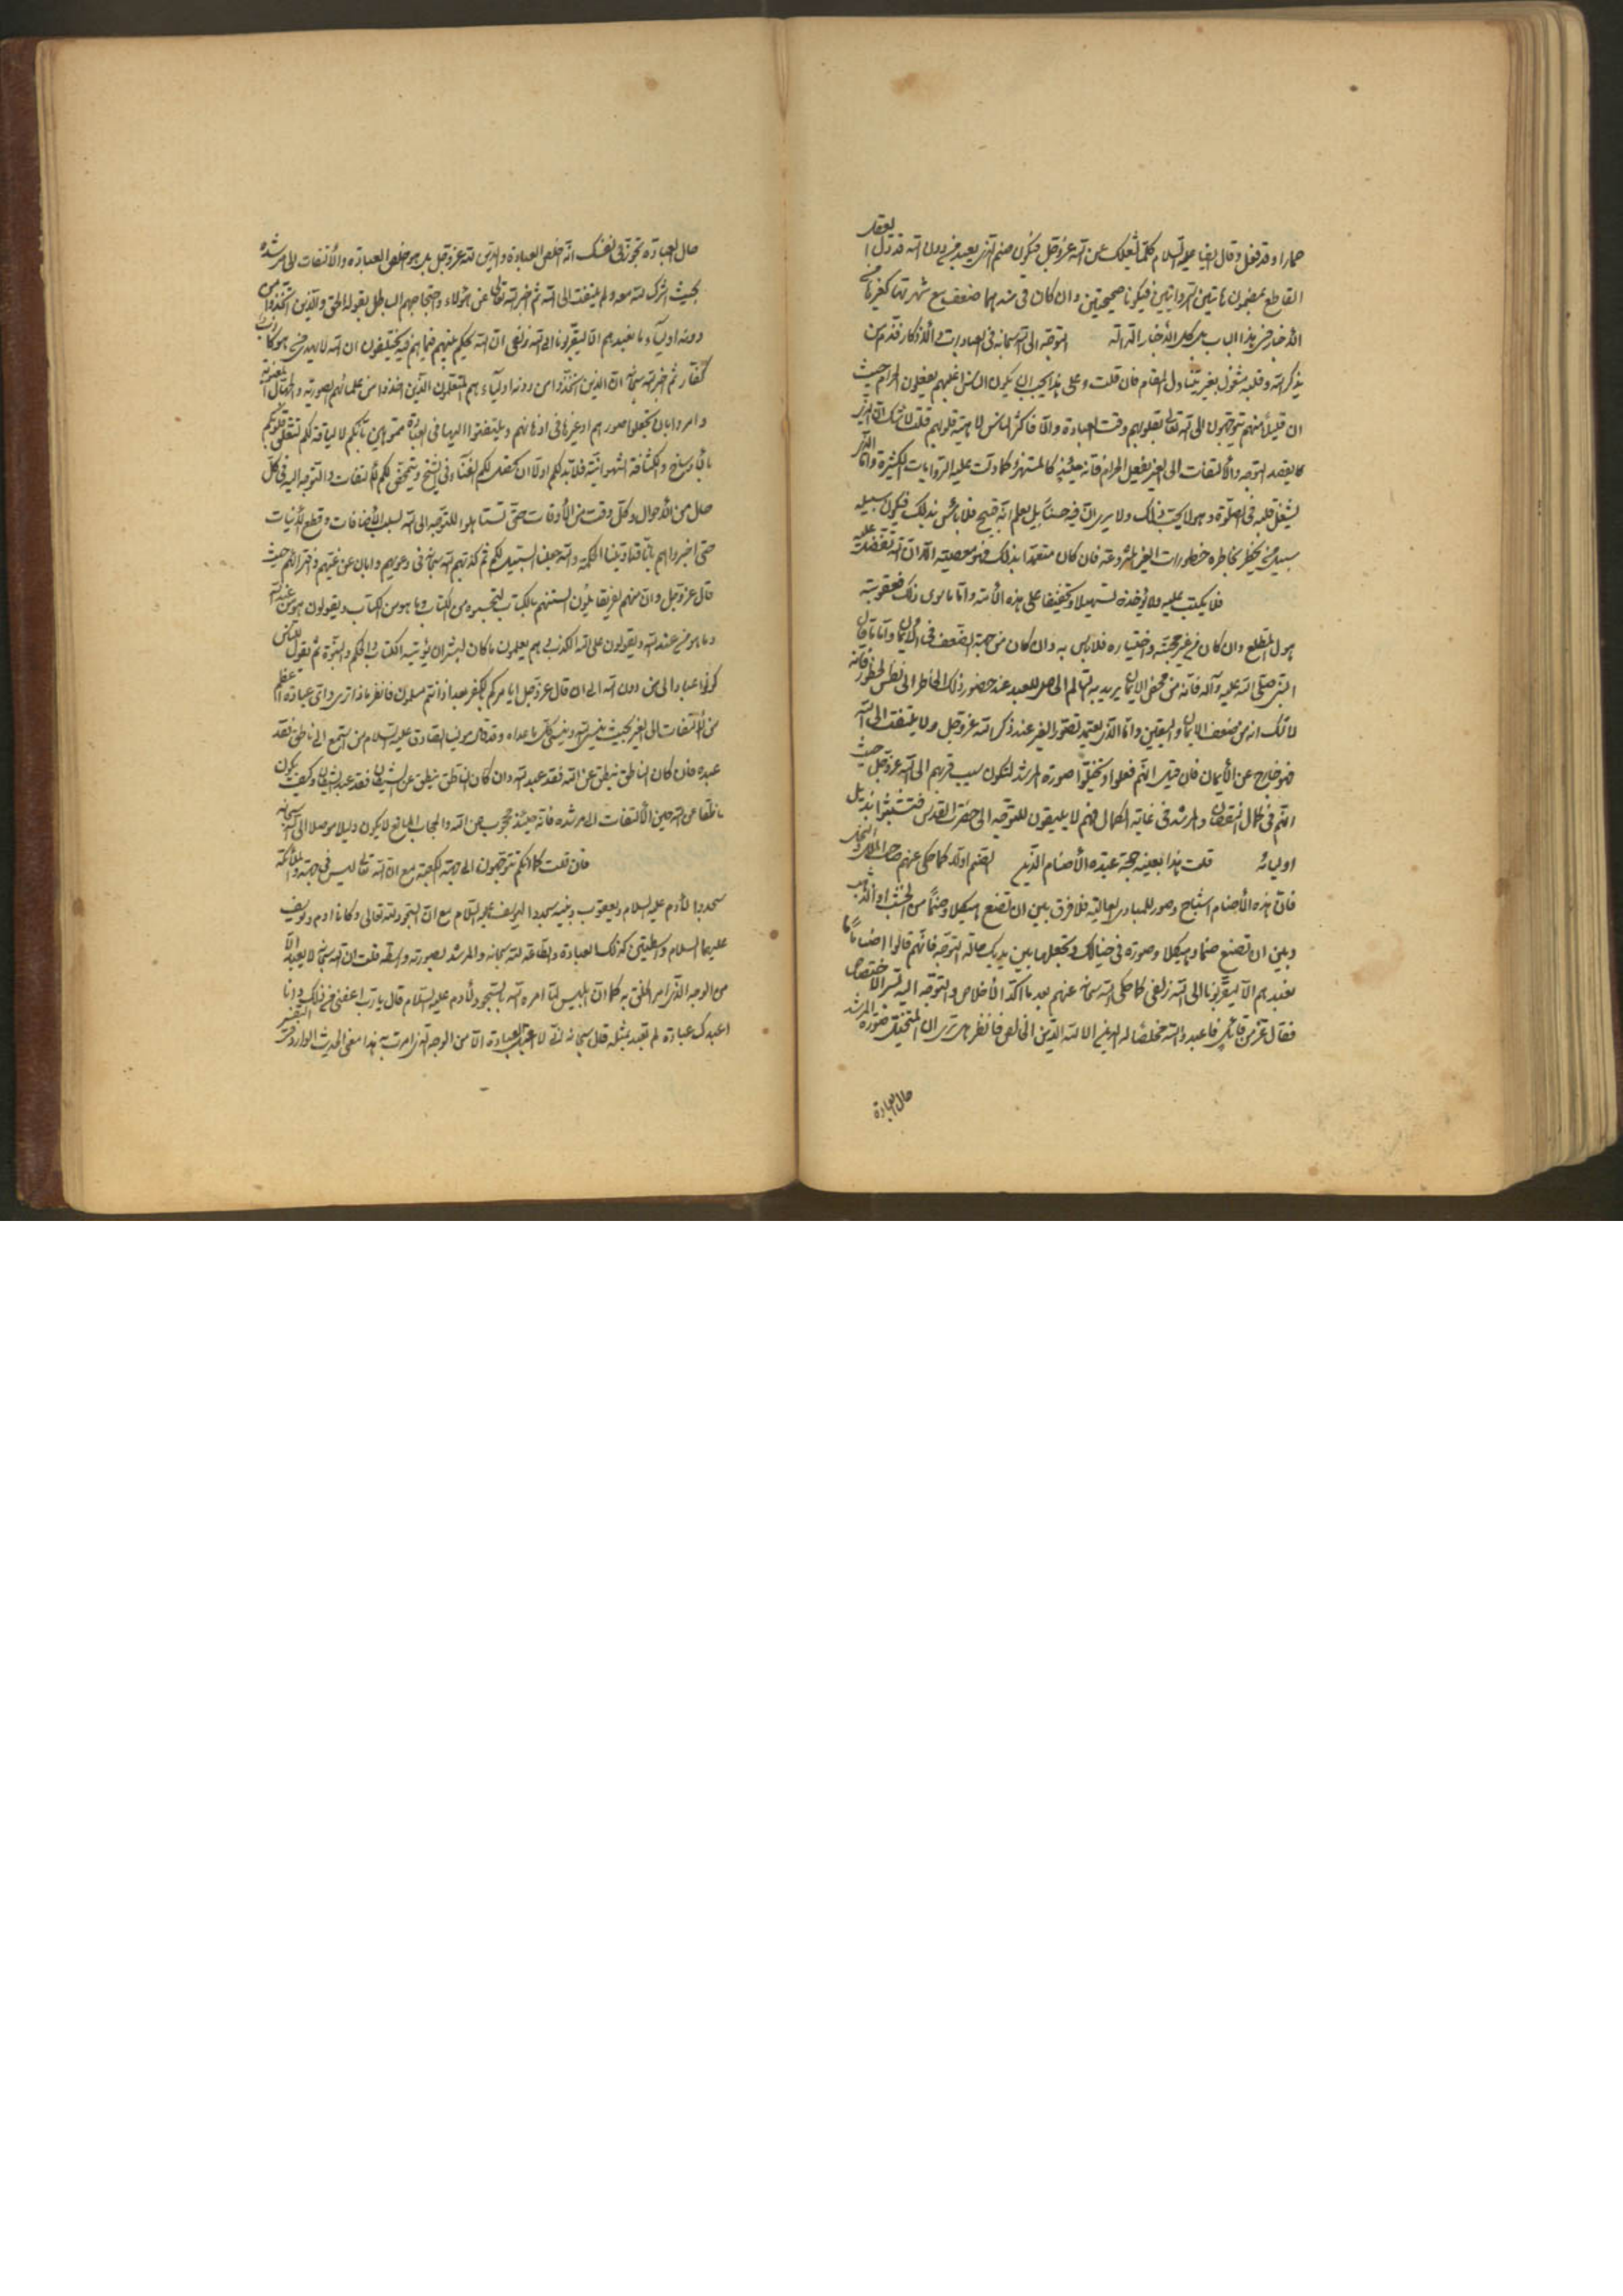 حمارا وقد فعل وقال ايضا عليه السلام كلما شغلك عن الله عز وجل فيكون صنم الذي يعبد من دون الله قد دل العقل
القاطع بمضمون هاتين الروايتين فيكونا صحيحتين وان كان في سندهما ضعف مع شهرتهما كغيرها من
الأخبار في هذا الباب بل كل الأخبار الدالة التوجه الى الله سبحانه في العبادات والأذكار فذم من
يذكر الله وقلبه مشغول بغيره يتناول المقام فان قلت وعلى هذا يجب ان يكون الناس اغلبهم يفعلون الحرام حيث
ان قليلا منهم يتوجهون الى الله تعالى بقلوبهم وقت العبادة والا فاكثر الناس لاهية قلوبهم قلت لا شك ان الذي
كان يقصد التوجه والألتفات الى الغير يفعل الحرام فانه حينئذ كالمستهزء كما دلت عليه الروايات الكثيرة واما الذي
يشغل قلبه في الصلوة وهو لا يحب ذلك ولا يرى ان فيه حسنا بل يعلم انه قبيح فلا بأس بذلك فيكون سبيله
سبيل من يخطر بخاطره خطورات الغير المشروعة فان كان متعمدا بذلك فهو معصية الا ان الله تفضل عليه
فلا يكتب عليه ولا يؤخذه تسهيلا وتخفيفا على هذه الأمة واما ما سوى ذلك فعقوبته
هول المطلع وان كان من غير محبته واختياره فلا بأس به وان كان من جهة الضعف في الأيمان واما ما قال
النبي صلى الله عليه وآله فانه من محض الايمان يريد به التألم الحاصل للعبد عند حضور ذلك الخاطر الى نفس الخطور فانه
لا شك انه من ضعف الايمان واليقين واما الذي يعتمد تصور الغير عند ذكر الله عز وجل ولا يلتفت الى الله
فهو خارج عن الأيمان فان قيل انهم فعلوا وتخيلوا صورة المرشد لتكون سبب قربهم الى الله عز وجل حيث
انهم في كمال النقصان والمرشد في غاية الكمال فهم لا يليقون للتوجه الى حضرت القدس فتشبثوا بذيل
اوليائه قلت هذا بعينه حجة عبدة الأصنام الذين لعنهم الله كما حكى عنهم صاحب الملل والنحل
فان هذه الأصنام اشباح وصور للمبادي العالية فلا فرق بين ان تصنع هيكلا وصنما من الخشب او الذهب
وبين ان تصنع صنما وهيكلا وصورة في خيالك وتجعلها بين يديك حالة التوجه فانهم قالوا ايضا ما
نعبدهم الا ليقربونا الى الله زلفى كما حكى الله سبحانه عنهم بعد ما اكد الأخلاص والتوجه اليه بسر الاختصاص
فقال عز من قائل فاعبد والله مخلصا له الدين الا لله الدين الخالص فانظر هل ترى ان المتخيل صورة المرشد
حال العبادة
حال العبادة تجوز في نفسك انه اخلص العبادة والدين لله عز وجل بل هو اخلص العبادة والألتفات الى مرشده
بحيث اشرك لله معه ولم يلتفت الى الله ثم اخبر الله تعالى عن هؤلاء واحتجاجهم الباطل بقوله الحق والذين اتخذوا من
دونه اولياء ما نعبدهم الا ليقربونا الى الله زلفى ان الله يحكم بينهم فيما هم فيه يختلفون ان الله لا يهدي من هو كاذب
كفار ثم اخبر الله سبحانه ان الذين اتخذوا من دونه اولياء هم المتعلمون الذين اخذوا من علمائهم الصورية والجهال المعنوية
وامروا بان يجعلوا صورهم او غيرها في اذهانهم ويلتفتوا اليها في العبادة مموهين بأنكم لا لياقة لكم لتعلق قلوبكم
بالأوساخ والكثافة الشهوانية فلا بد لكم اولا ان يحصل لكم الفناء في الشيخ ويتحقق لكم الألتفات والتوجه اليه في كل
حال من الأحوال وكل وقت من الأوقات حتى تستاهلوا للتوجه الى الله بسلب الأضافات وقطع الأنيات
حتى اخبروا هم بانا قد اوتينا الحكمة والله جعلنا السبيل لكم ثم كذبهم الله سبحانه في دعويهم وابان عن غيهم وافترائهم حيث
قال عز وجل وان منهم لفريقا يلون السنتهم بالكتاب لتحسبوه من الكتاب وما هو من الكتاب ويقولون هو من عند الله
وما هو من عند الله ويقولون على الله الكذب وهم يعلمون ما كان لبشر ان يؤتيه الله الكتاب والحكم والنبوة ثم يقول للناس
كونوا عبادا لي من دون الله الى ان قال عز وجل ايأمركم بالكفر بعد اذ انتم مسلمون فانظر ماذا ترى واي عبادة اعظم
من الألتفات الى الغير بحيث ينسى الله وينسى كل ما عداه وقد قال مولينا الصادق عليه السلام من استمع الى ناطق فقد
عبده فان كان الناطق ينطق عن الله فقد عبد الله وان كان الناطق ينطق عن الشيطان فقد عبد الشيطان وكيف يكون
ناطقا عن الله حين الألتفات الى مرشده فانه حينئذ محجوب عن الله والحجاب المانع لا يكون دليلا موصلا الى الله سبحانه
فان قلت كما انكم تتوجهون الى جهة الكعبة مع ان الله تعالى ليس في جهة والملائكة
سجدوا لأدم عليه السلام ويعقوب وبنيه سجدوا ليوسف عليه السلام مع ان السجود لله تعالى وكانا ادم ويوسف
عليهما السلام واسطتين كذلك العبادة والطاعة لله سبحانه والمرشد بصورته واسطة قلت ان الله سبحانه لا يعبد الا
من الوجه الذي امر الخلق به كما ان ابليس لما امره الله بالسجود لأدم عليه السلام قال يا رب اعفني من ذلك وانا
اعبدك عبادة لم تعبد بمثله قال سبحانه اني لا اقبل العبادة الا من الوجه الذي امرت به هذا معنى الحديث الوارد في التفسير